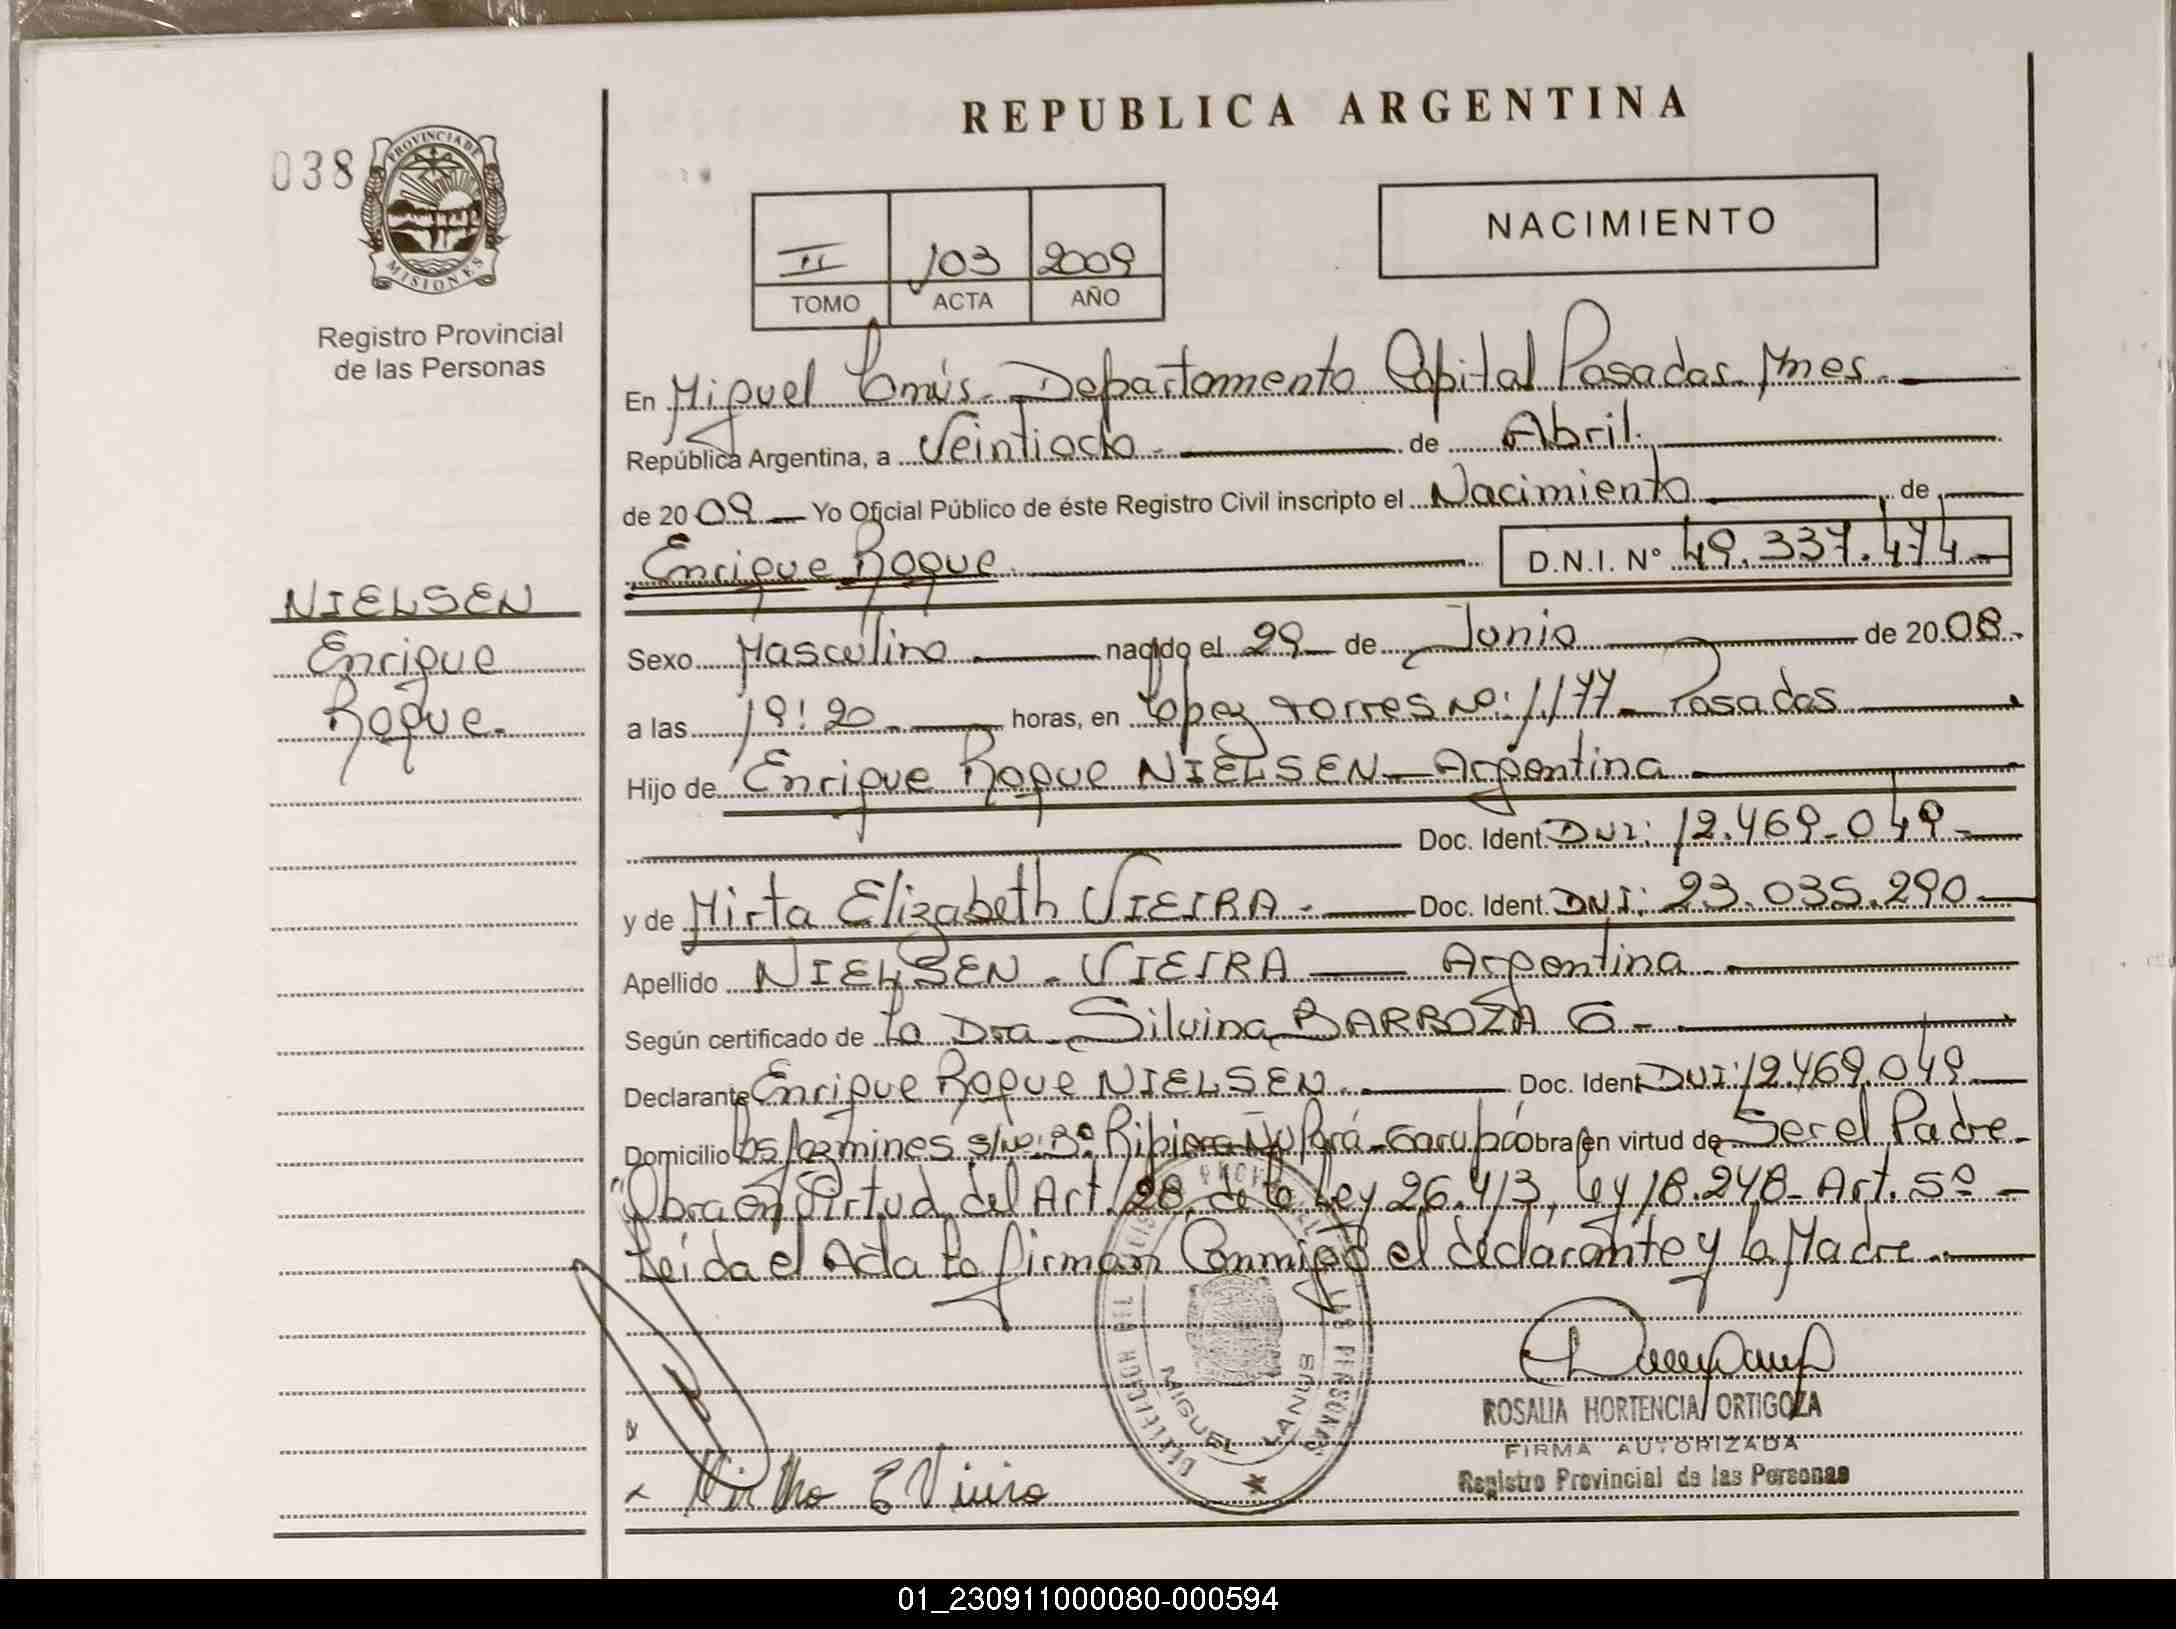 REPUBLICA ARGENTINA
038
PROVINCIA DE
MISIONES
Registro Provincial
de las Personas
NACIMIENTO
II 103 2009
TOMO ACTA AÑO
En Miguel Lanús. Departamento Capital Posadas. Mnes.
República Argentina, a Veintiocho de Abril.
de 2009 Yo Oficial Público de éste Registro Civil inscripto el Nacimiento de
Enrique Roque D.N.I. N° 49.337.474
NIELSEN
Enrique
Roque.
Sexo Masculino nacido el 29 de Junio de 2008
a las 19:20 horas, en Lopez torres No: 1177 Posadas
Hijo de Enrique Roque NIELSEN Argentina
Doc. Ident. DNI: 12.469.049
y de Mirta Elizabeth VIEIRA. Doc. Ident. DNI: 23.035.290
Apellido NIELSEN - VIEIRA Argentina
Según certificado de La Dra. Silvina BARROZA G.
Declarante Enrique Roque NIELSEN. Doc. Ident DNI: 12.469.049
Domicilio los Jazmines s/No: B° Ribiera Ñu Porá - Garupá obra en virtud de Ser el Padre
"Obra en Virtud del Art. 28. de la Ley 26.413, Ley 18.248 - Art. 5°
Leída el Acta la firman Conmigo el declarante y la Madre.
DELEGACION DEL REGISTRO LAS PERSONAS
MIGUEL LANUS
ROSALIA HORTENCIA ORTIGOZA
FIRMA AUTORIZADA
Registro Provincial de las Personas
01_230911000080-000594